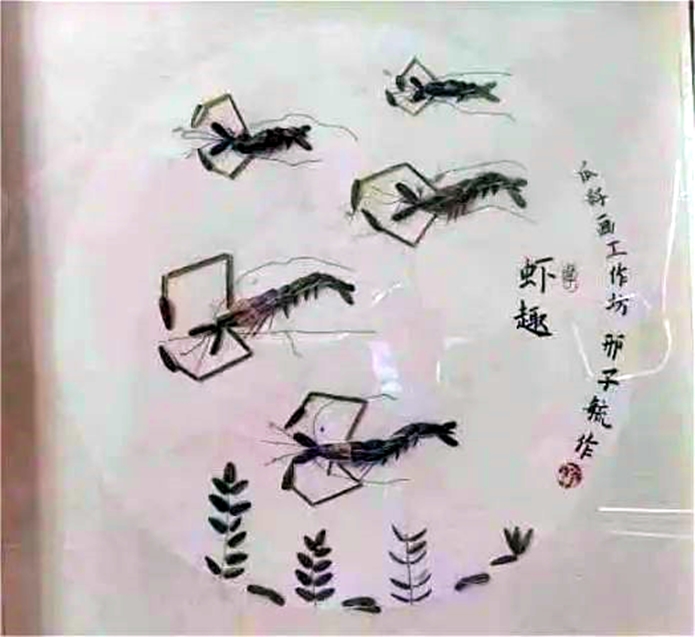 虾趣
瓜籽画工作坊 邢子毓作